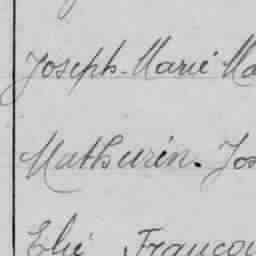 Joseph-Marie Ma
Mathurin. Jos
Elie Françoi